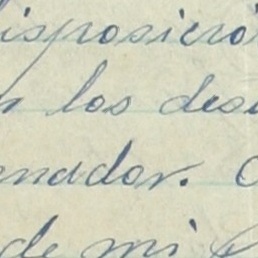 isposició
n los des
enador.
de mi